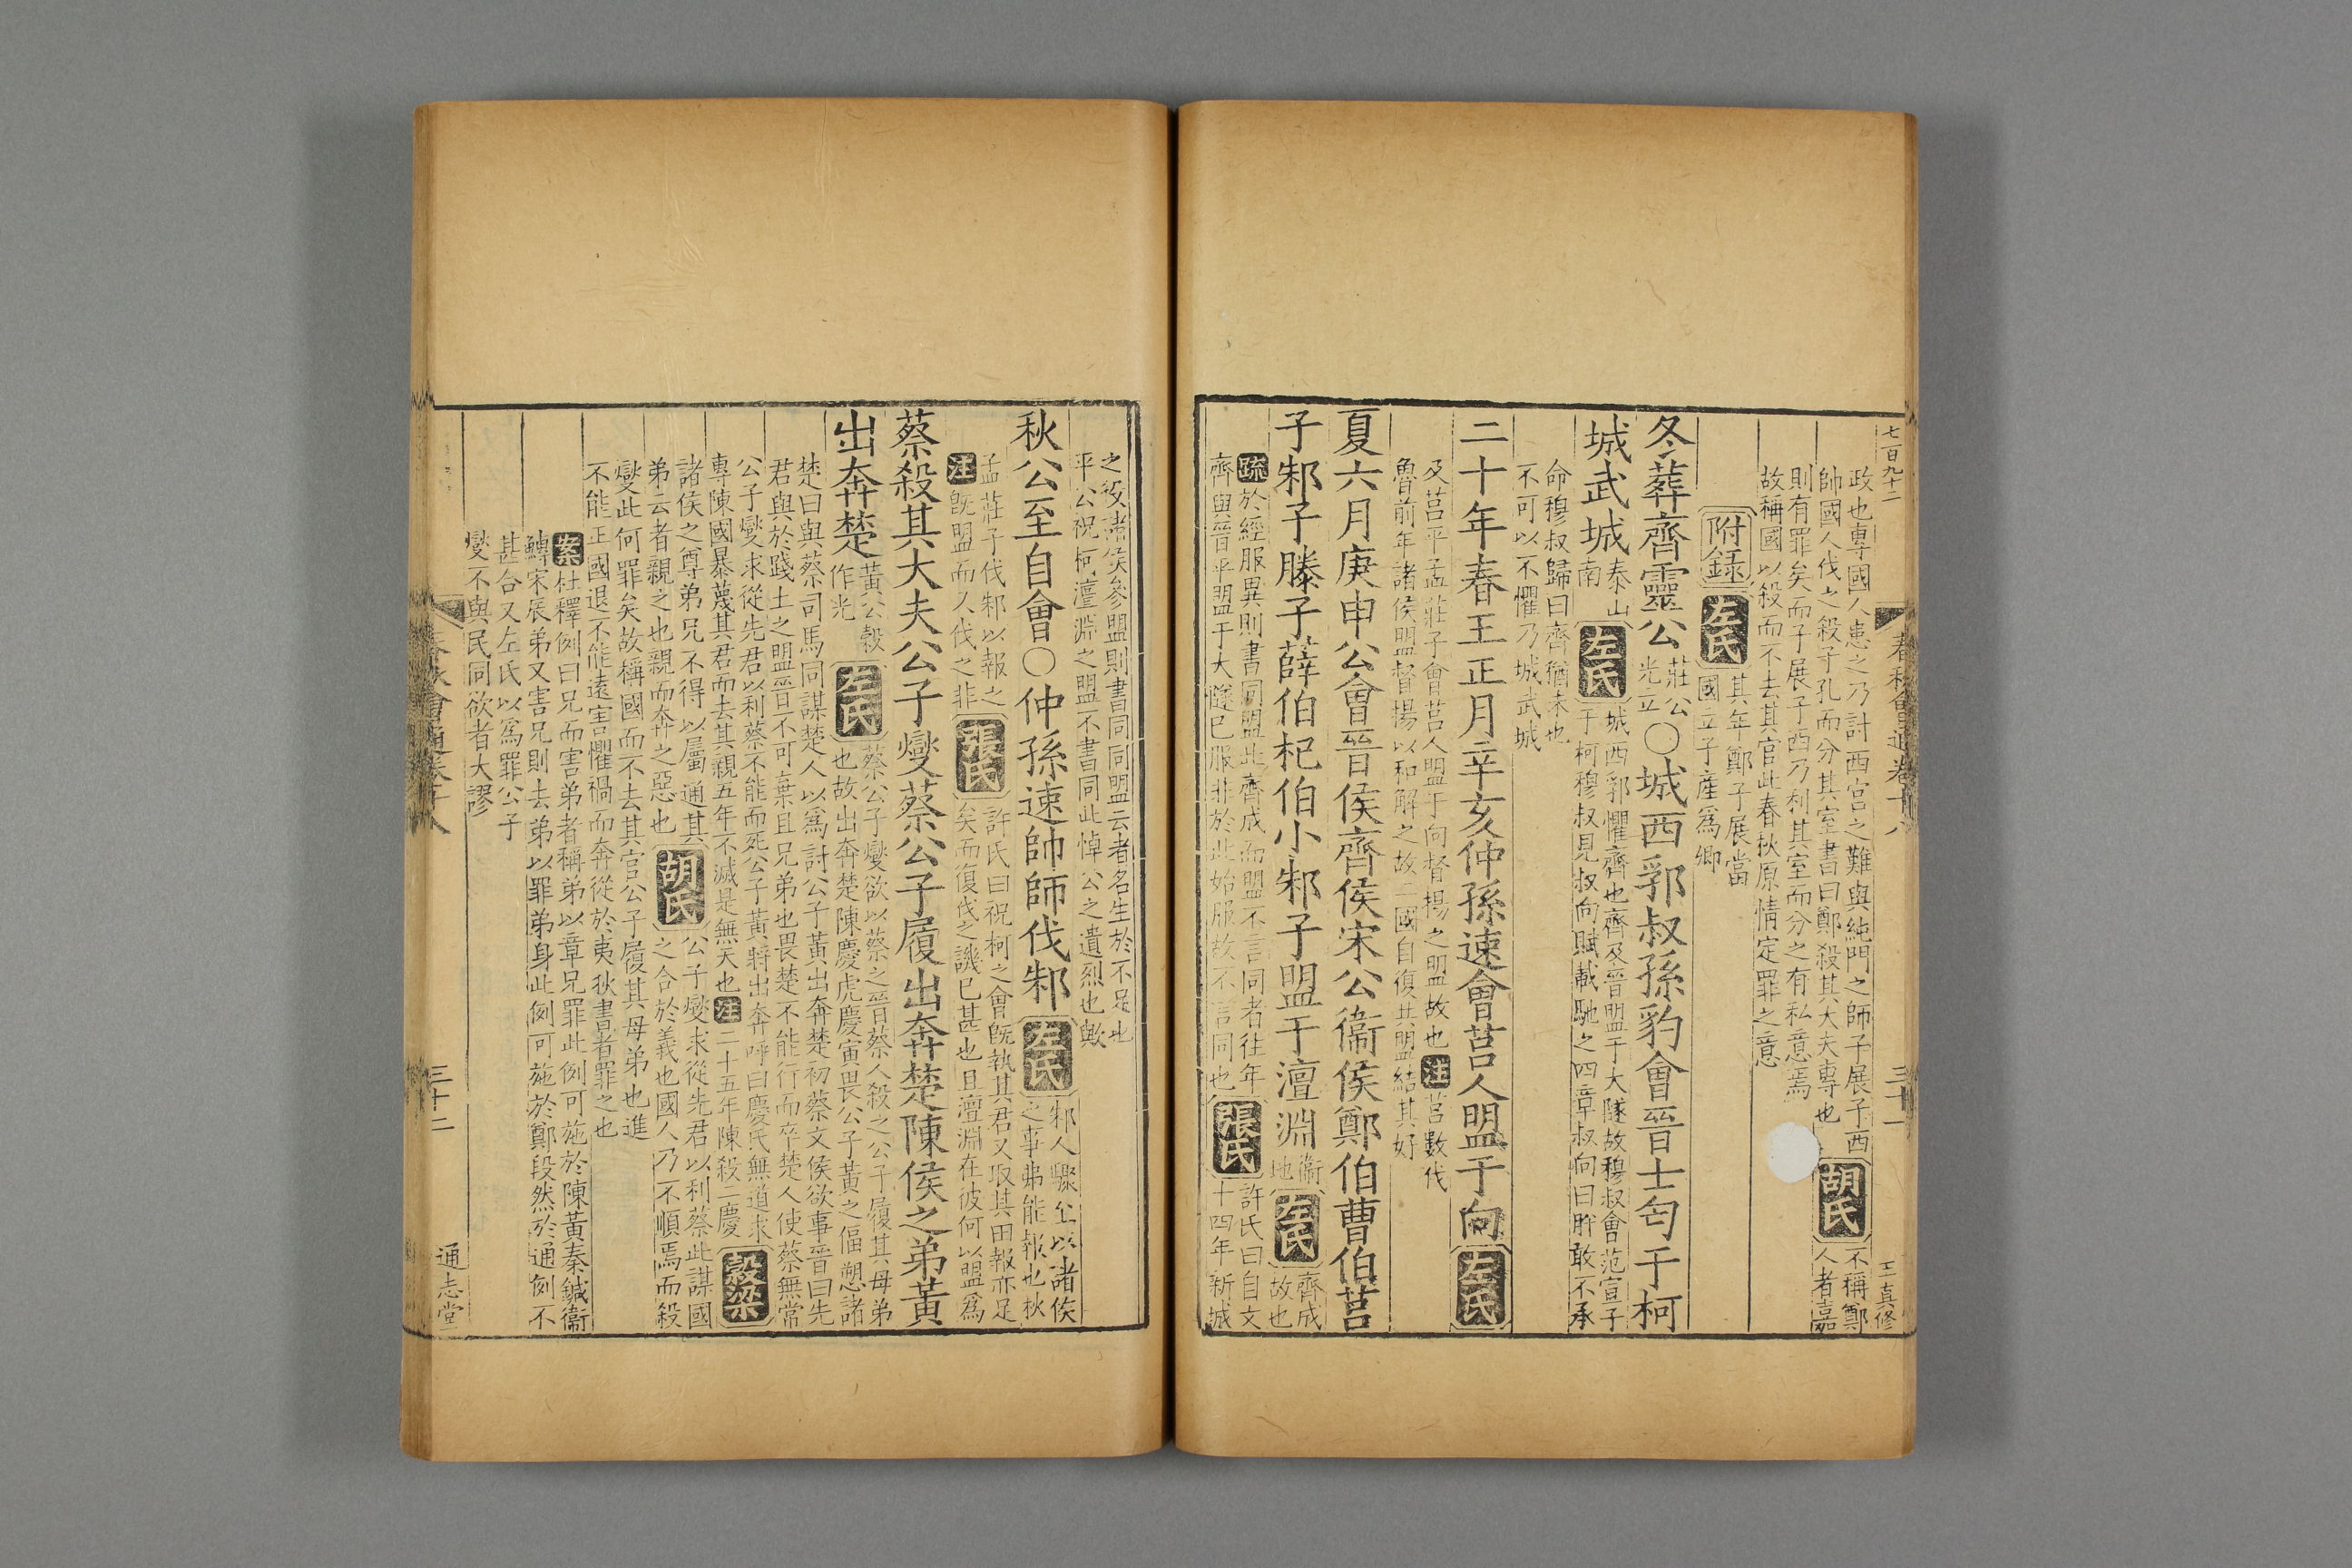 七百九十二
春秋會通卷十八
三十一
王真修
政也專國人患之乃討西宮之難與純門之師子展子西
帥國人伐之殺子孔而分其室書曰鄭殺其大夫專也胡氏不稱鄭
人者嘉
則有罪矣而子展子西乃利其室而分之有私意焉
故稱國以殺而不去其官此春秋原情定罪之意
附錄左氏其年鄭子展當
國立子產爲卿
冬葬齊靈公莊公
光立〇城西郛叔孫豹會晉士匄于柯
城武城泰山
南左氏城西郛懼齊也齊及晉盟于大隧故穆叔會范宣子
于柯穆叔見叔向賦載馳之四章叔向曰肸敢不承
命穆叔歸曰齊猶未也
不可以不懼乃城武城
二十年春王正月辛亥仲孫速會莒人盟于向左氏
及莒平孟莊子會莒人盟于向督揚之盟故也注莒數伐
魯前年諸侯盟督揚以和解之故二國自復共盟結其好
夏六月庚申公會晉侯齊侯宋公衞侯鄭伯曹伯莒
子邾子滕子薛伯杞伯小邾子盟于澶淵衞
地左氏齊成
故也
疏於經服異則書同盟此齊成而盟不言同者往年
齊與晉平盟于大隧已服非於此始服故不言同也張氏許氏曰自文
十四年新城
之役諸侯參盟則書同同盟云者名生於不足也
平公祝柯澶淵之盟不書同此悼公之遺烈也歟
秋公至自會〇仲孫速帥師伐邾左氏邾人驟至以諸侯
之事弗能報也秋
孟莊子伐邾以報之
注旣盟而又伐之非張氏許氏曰祝柯之會旣執其君又取其田報亦足
矣而復伐之譏已甚也且澶淵在彼何以盟爲
蔡殺其大夫公子燮蔡公子履出奔楚陳侯之弟黃
出奔楚黃公穀
作光左氏蔡公子燮欲以蔡之晉蔡人殺之公子履其母弟
也故出奔楚陳慶虎慶寅畏公子黃之偪愬諸
楚曰與蔡司馬同謀楚人以爲討公子黃出奔楚初蔡文侯欲事晉曰先
君與於踐土之盟晉不可棄且兄弟也畏楚不能行而卒楚人使蔡無常
公子燮求從先君以利蔡不能而死公子黃將出奔呼曰慶氏無道求
專陳國暴蔑其君而去其親五年不滅是無天也注二十五年陳殺二慶穀梁
諸侯之尊弟兄不得以屬通其
弟云者親之也親而奔之惡也胡氏公子燮求從先君以利蔡此謀國
之合於義也國人乃不順焉而殺
燮此何罪矣故稱國而不去其官公子履其母弟也進
不能正國退不能遠害懼禍而奔從於夷狄書者罪之也
案杜釋例曰兄而害弟者稱弟以章兄罪此例可施於陳黃秦鍼衞
鱄宋辰弟又害兄則去弟以罪弟身此例可施於鄭段然於通例不
甚合又左氏以爲罪公子
燮不與民同欲者大謬
三十二
通志堂